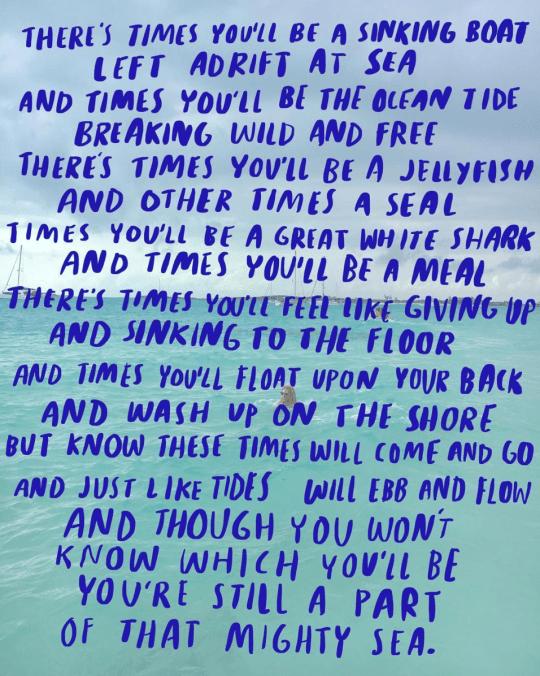 THERE'S TIMES YOU'LL BE A SINKING BOAT
LEFT ADRIFT AT SEA
AND TIMES YOU'LL BE THE OCEAN TIDE
BREAKING WILD AND FREE
THERE'S TIMES YOU'LL BE A JELLYFISH
AND OTHER TIMES A SEAL
TIMES YOU'LL BE A GREAT WHITE SHARK
AND TIMES YOU'LL BE A MEAL
THERE'S TIMES YOU'LL FEEL LIKE GIVING UP
AND SINKING TO THE FLOOR
AND TIMES YOU'LL FLOAT UPON YOUR BACK
AND WASH UP ON THE SHORE
BUT KNOW THESE TIMES WILL COME AND GO
AND JUST LIKE TIDES WILL EBB AND FLOW
AND THOUGH YOU WON'T
KNOW WHICH YOU'LL BE
YOU'RE STILL A PART
OF THAT MIGHTY SEA.